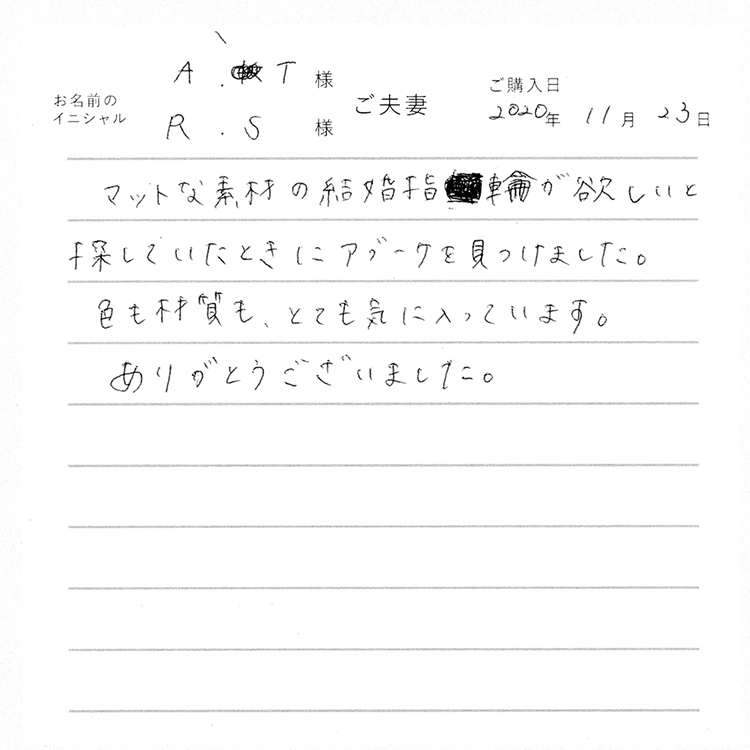 お名前の
イニシャル
A . T 様
R . S 様
ご夫妻
ご購入日
2020年 11月 23日
マットな素材の結婚指輪が欲しいと
探していたときにアブークを見つけました。
色も材質も、とても気に入っています。
ありがとうございました。